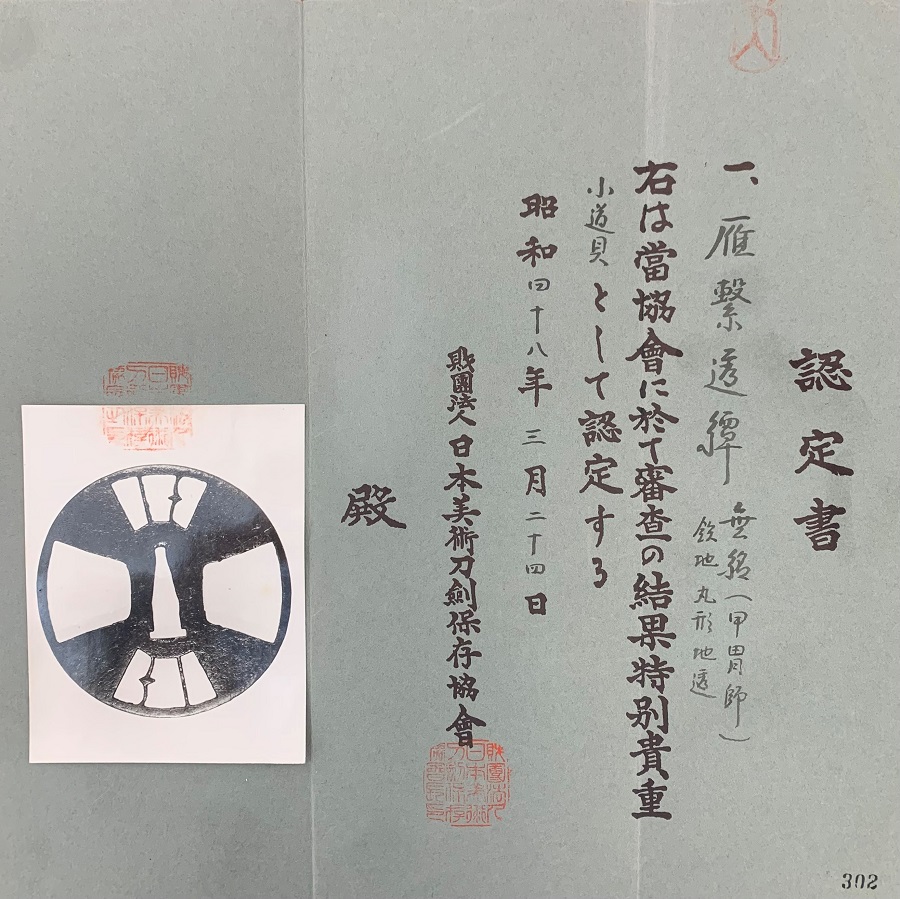 認定書
一、雁繋透鐔 無銘（甲冑師）
鉄地丸形地透
右は當協會に於て審査の結果特別貴重
小道具として認定する
昭和四十八年三月二十四日
財團法人日本美術刀劍保存協會
殿
302